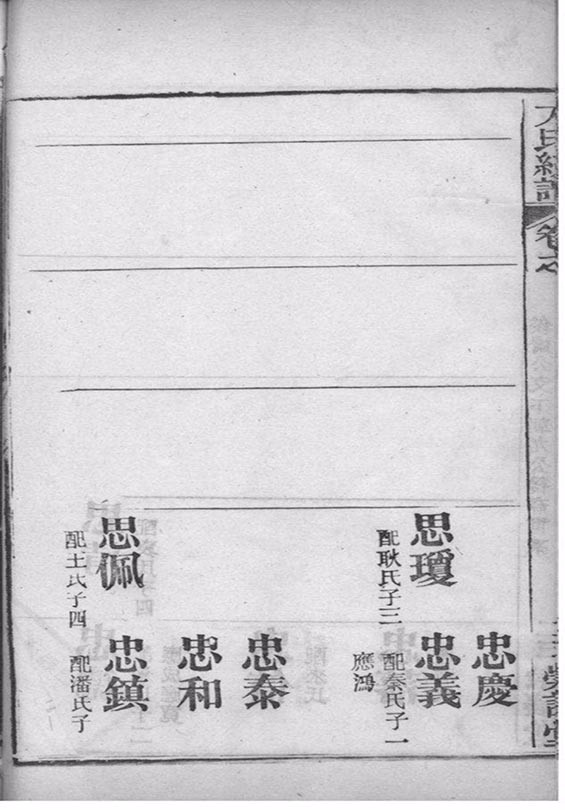 卷之
思瓊
配耿氏子三
思佩
配王氏子四
忠慶
忠義
配秦氏子一
應鴻
忠泰
忠和
忠鎮
配潘氏子